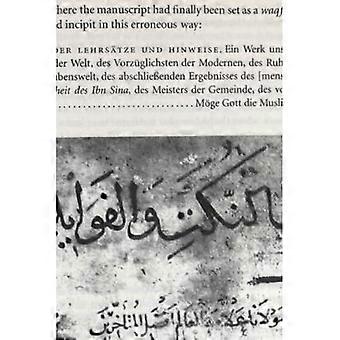 here the manuscript had finally been set as a waqf
nd incipit in this erroneous way:
DER LEHRSÄTZE UND HINWEISE. Ein Werk uns
der Welt, des Vorzüglichsten der Modernen, des Ruh
ubenswelt, des abschließenden Ergebnisses des [mens
heit des Ibn Sina, des Meisters der Gemeinde, des vo
Möge Gott die Musli
النكت والفوايد
مولانا العالم افضل المتاخرين